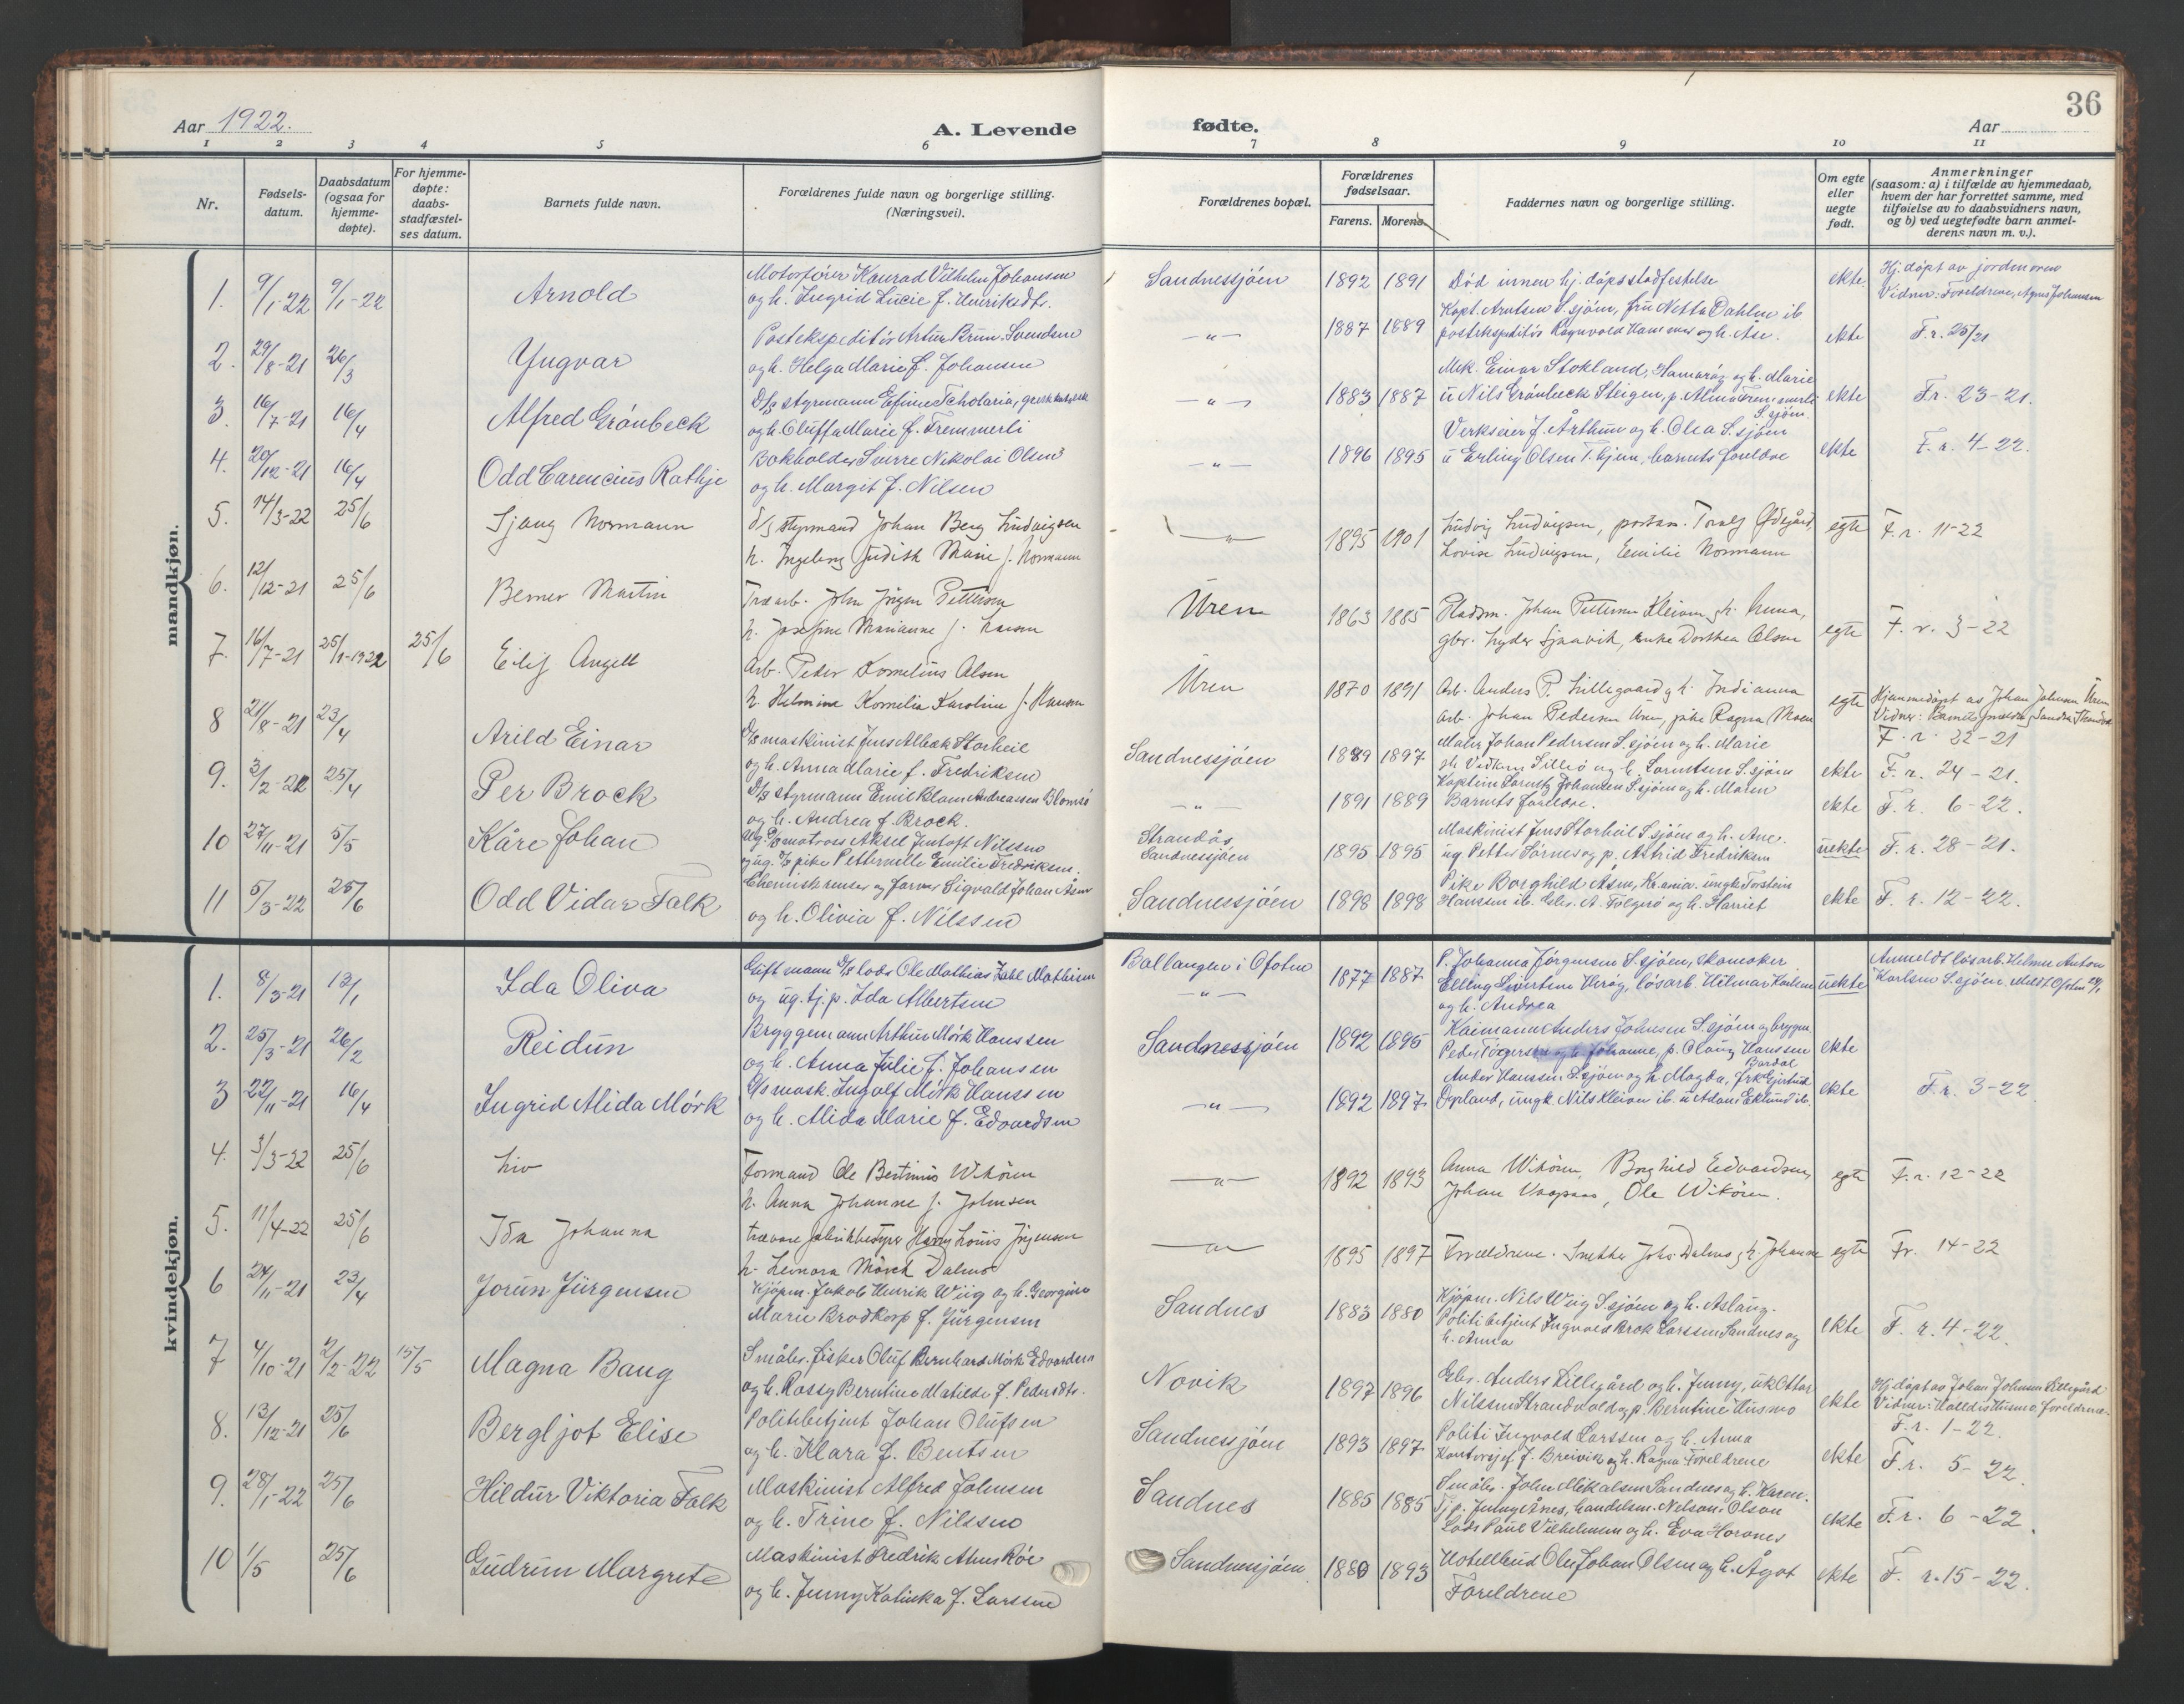 36
Aar 1922.
A. Levende
fødte.
Aar
1 2 3 4 5 6 7 8 9 10 11
Nr.
Fødsels-
datum.
Daabsdatum
(ogsaa for
hjemme-
døpte).
For hjemme-
døpte:
daabs-
stadfæstel-
ses datum.
Barnets fulde navn.
Forældrenes fulde navn og borgerlige stilling.
(Næringsvei).
Forældrenes bopæl.
Forældrenes
fødselsaar.
Farens. Morens.
Faddernes navn og borgerlige stilling.
Om egte
eller
uegte
født.
Anmerkninger
(saasom: a) i tilfælde av hjemmedaab,
hvem der har forrettet samme, med
tilføielse av to daabsvidners navn,
og b) ved uegtefødte barn anmel-
derens navn m. v.).
mandkjøn.
1. 9/1-22 9/1-22 Arnold
Motorfører Konrad Vilhelm Johansen
og h. Ingrid Lucie f. Henriksdt.
Sandnessjöen 1892 1891
Död innen hj. döpsstadfestelse
ekte
Hj. döpt av jordmoren
Vidner: Foreldrene, Agnes Johansen
2. 29/8-21 26/3 Yngvar
Postekspeditör Artur Brun Svendsen
og h. Helga Marie f. Johansen
-"- 1887 1889
Kapt. Arntsen S.sjöen, fru Netta Dahlen ib
postekspeditör Ragnvald Hammer og h. Åse.
ekte F.r. 25/21
3. 16/7-21 16/4 Alfred Grönbeck
D/s styrmann Efime Scholaria, gresk katolsk
og h. Oluffa Marie f. Fremmerli
-"- 1883 1887
Mek. Einar Stokland, Hamaröy og h. Marie
u Nils Grönbeck Steigen, p. Alma Fremmerli
S.sjöen
ekte Fr. 23-21.
4. 20/12-21 16/4 Odd Carencius Rathje
Bokholder Sverre Nikolai Olsen
og h. Margit f. Nilsen
-"- 1896 1895
Verkseier J. Årthun og h. Olea S.sjöen
u Erling Olsen T.hjem, barnets foreldre
ekte F.r. 4-22.
5. 14/3-22 25/6 Sjang Normann
d/s styrmand Johan Berg Ludvigsen
h. Ingeborg Judith Marie f. Normann
-"- 1895 1901
Ludvig Ludvigsen, postass. Toralf Ødegård,
Lovise Ludvigsen, Emilie Normann
egte F.r. 11-22
6. 12/12-21 25/6 Berner Martin
Træarb. John Jörgen Pettersen
h. Josefine Marianne f. Larsen
Uren 1863 1885
Pladsm. Johan Pettersen Kleiven og h. Anna,
gbr. Lyder Sjaavik, enke Dorthea Olsen
egte F.r. 3-22
7. 16/7-21 25/1-1922 25/6 Eilif Angell
Arb. Peter Kornelius Olsen
h. Helmine Kornelia Karoline f. Hansen
Uren 1870 1891
Arb. Anders P. Lillegaard og h. Indianna
Arb. Johan Pedersen Uren, pike Ragna Moen
egte
Hjemmedöpt av Johan Johnsen Uren
Vidner: Barnets forældre, Sandra
F.r. 22-21
8 21/8-21 23/4 Arild Einar
D/s maskinist Jens Albek Storheil
og h. Anna Marie f. Fredriksen
Sandnessjöen 1889 1897
Maler Johan Pedersen S.sjöen og h. Marie
ekte F.r. 24-21.
9. 3/2-22 25/4 Per Brock
D/s styrmann Emil Blom Andreassen Blomsö
og h. Andrea f. Brock.
-"- 1891 1889
Kaptein Lorentz Johansen S.sjöen og h. Maren
Barnets foreldre.
ekte F.r. 6-22.
10 27/11-21 5/5 Kåre Johan
Ug. D/s matros Aksel Jentoft Nilssen
og ug. pike Petternelle Emilie Fredriksen.
Strandås
Sandnessjöen 1895 1895
Maskinist Jens Storheil S.sjöen og h. Ane.
ug Petter Törnes og p. Astrid Fredriksen
uekte F.r. 28-21.
11 5/3-22 25/6 Odd Vidar Falk
Chemisk renser og farver Sigvald Johan Åsen
og h. Olivia f. Nilssen
Sandnessjöen 1898 1898
Pike Borghild Åsen, Kr.ania. ungk Torstein
Hanssen ib. Gbr. A. Folgerö og h. Harriet
ekte F.r. 12-22.
kvindekjøn.
1. 8/3-21 13/1 Ida Oliva
Gift mann D/s lods Ole Mathias Zahl Mathisen
og ug. tj.p. Ida Albertsen
Ballangen i Ofoten
-"- 1877 1887
P. Johanna Jörgensen S.sjöen, skomaker
Elling Sivertsen Heröy, lösarb. Hilmar Karlsen
og h. Andrea
uekte
Anmeldt lösarb. Helmer Anton
Karlsen S.sjöen. Meldt Ofoten
2. 25/3-21 26/2 Reidun
Bryggemann Arthur Mörk Hanssen
og h. Anna Julie f. Johansen
Sandnessjöen 1892 1895
Kaimann Anders Johnsen S.sjöen og bryggm.
Peder Torgersen og h. Johanne, p. Olaug Hanssen
Bardal
ekte
3 22/11-21 16/4 Ingrid Alida Mörk
D/s mask. Ingolf Mörk Hanssen
og h. Alida Marie f. Edvardsen
-"- 1892 1897
Anders Hanssen S.sjöen og h. Magda, frk Gjertrud
Opland, ungk. Nils Kleiven ib. u Adam Eklund ib.
ekte F.r. 3-22
4. 3/3-22 25/6 Liv
Formand Ole Bertinius Wikören
h. Anna Johanne f. Johnsen
-"- 1892 1893
Anna Wikören, Borghild Edvardsen,
Johan , Ole Wikören.
egte F.r. 12-22
5. 11/4-22 25/6 Ida Johanna
Trævarefabrikbestyrer Harry Louis Jörgensen
h. Leonora Mörch Dalmo
-"- 1895 1897
Forældrene. Snekker Johs Dalmo, h. Johanne
egte Fr. 14-22
6 24/11-21 23/4 Jorun Jürgensen
Kjöpm. Jakob Henrik Wiig og h. Georgine
Marie Brodkorp f. Jürgensen
Sandnes 1883 1880
Kjöpm. Nils Wiig S.sjöen og h. Aslaug.
Politibetjent Ingvald Brok Larssen Sandnes og
h. Anna
ekte F.r. 4-22.
7 4/10-21 2/2-22 15/5 Magna Baug
Småbr. fisker Oluf Bernhard Mörk Edvardsen
og h. Rossy Berntine Matilde f. Pedersdtr.
Novik 1897 1896
Gbr. Anders Lillegård og h. Jenny, uk Ottar
Nilssen Strandvold og p. Berntine Husmo
ekte
Hj. döpt av Johan Johnsen Lillegård
Vidner: Halldis Husmo, foreldrene.
F.r. 1-22.
8. 13/12-21 25/6 Bergljot Elise
Politibetjent Johan Olufsen
og h. Klara f. Bentsen
Sandnessjöen 1893 1897
Politi Ingvald Larssen og h. Anna
Kontorsjef J. Breivik og h. Ragna Foreldrene
ekte F.r. 5-22.
9. 28/1-22 25/6 Hildur Viktoria Falk
Maskinist Alfred Johnsen
og h. Trine f. Nilssen
Sandnes 1885 1885
Småbr. Johan Mikalsen Sandnes og h. Karen.
Tj.p. Jenny Ånes, handelsm. Nelson Olson
Lods Paul Vilhelmsen og h. Eva Horsnes
ekte F.r. 6-22.
10 1/5 25/6 Gudrun Margrete
Maskinist Fredrik Röe
og h. Jenny Katinka f. Larssen
Sandnessjöen 1880 1893
Hotellbud Ole Johan Olsen og h. Ågot
Foreldrene
ekte F.r. 15-22.